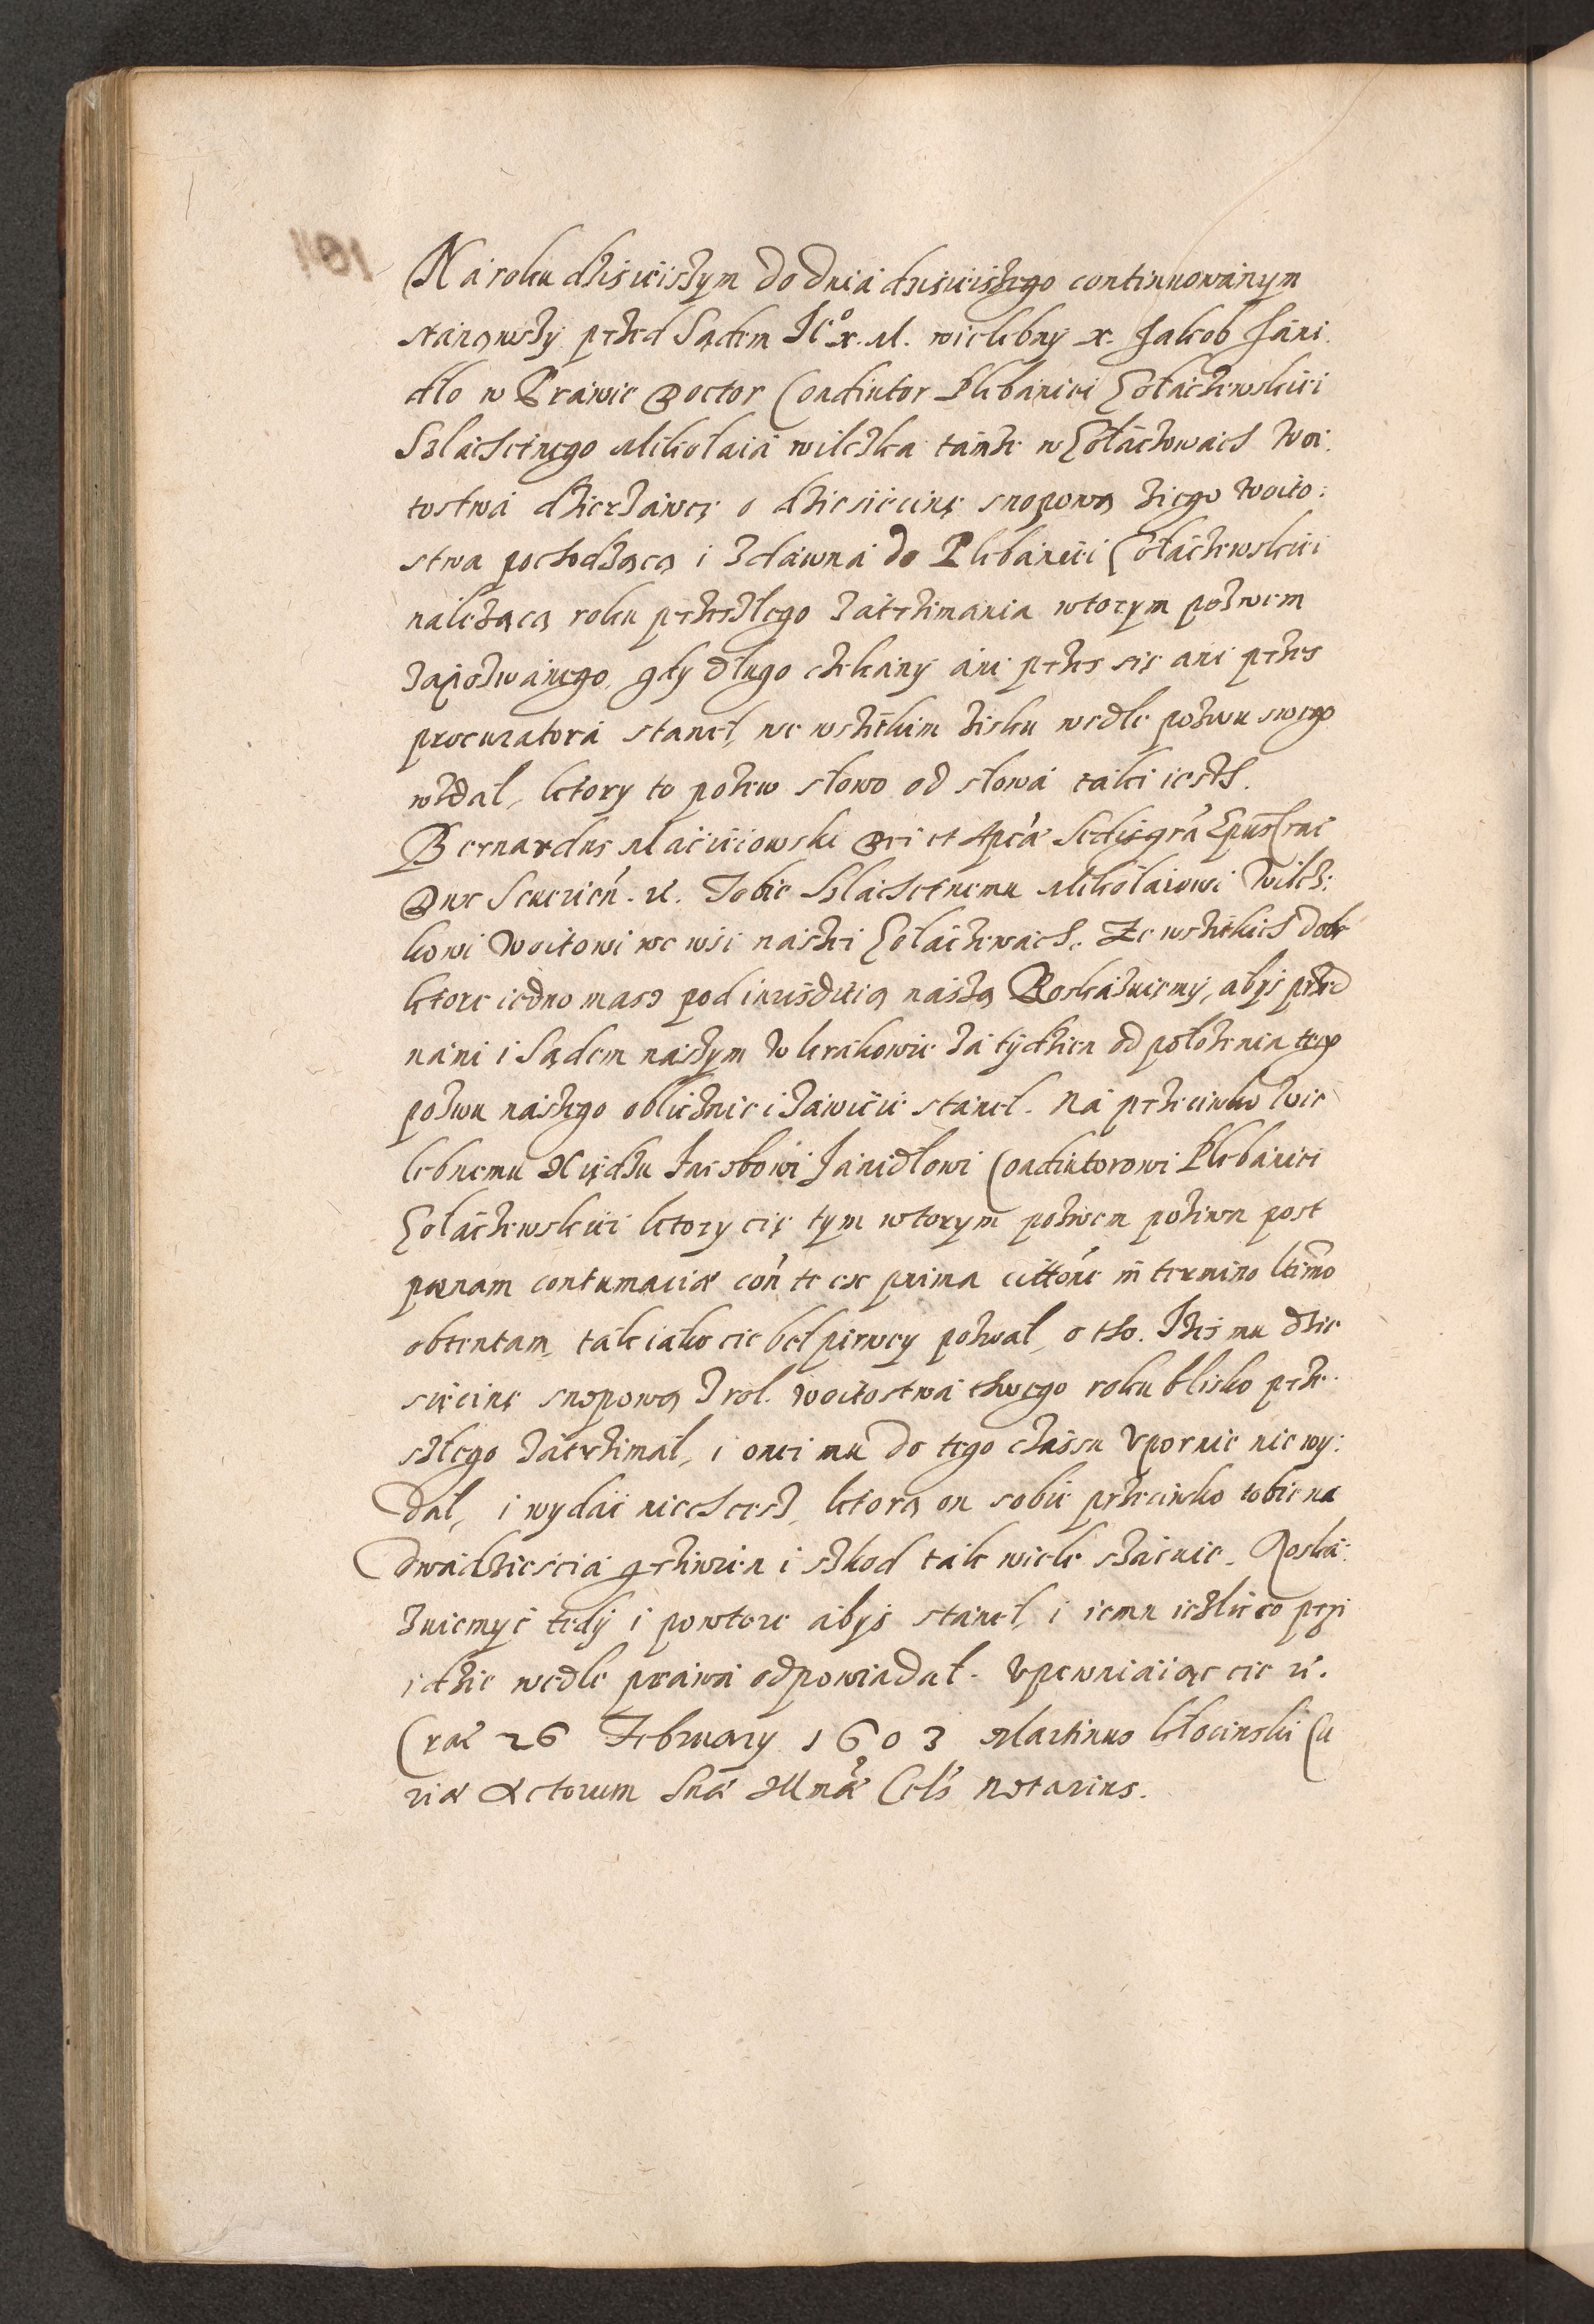 Na roku dzisieiszym do dnia dzisieiszego continuowanym
stanąwszy przed Sądem Jeo x. M. wielebny x. Jakob Jani:
dło w Prawie Doctor Coadiutor Plebaniei Gołaczewskiei
Szlachetnego Mikołaia wilczka tamże w Gołaczewach woi:
tostwa dzierzawcę o dziesięcinę snopową ziego woito:
stwa pochodzącą i zdawna do Plebaniei Gołaczewskiei
należącą roku przeszłego zatrzimania wtorym pozwem
zapozwanego, gdy długo czekany ani przes się ani przes
procuratora stanel, we wszitkim zisku wedle pozwu swego
wzdał, ktory to pozew słowo od słowa taki iesth.
Bernardus Macieiowski Dei et Apcæ Sedis gra Epus Crac
Dux Severien. etc. Tobie Szlachetnemu Mikołaiowi Wilcz:
kowi Woitowi we wsi naszei Gołaczewach. Ze wszitkich dobr
ktore iedno masz pod iurisdicią naszą Roskazuiemy, abys przed
nami i Sądem naszym w krakowie za tydzien od położenia tego
pozwu naszego oblicznie i zawicie stanel. Na przeciwko wie
lebnemu Xiędzu Jacobowi Janidłowi Coadiutorowi Plebaniei
Gołaczewskiei ktory cię tym wtorym pozwem pożiwa post
pœnam contumaciæ con te ex prima cittone in termino ltimo
obtentam, tak iako cie bel pirwey pozwał, o tho. Izes mu dzie
sięcinę snopową z rol. woitostwa thwego roku blisko prze:
szłego zatrzimał, i onei mu do tego czassu vpornie nie wy:
dał, i wydać niechcesz, ktorą on sobie przeciwko tobie na
dwadziescia grziwien i szkod tak wiele szacuie. Roska:
zuiemyć tedy i powtore abys stanel, i iemu iezlić co przi
idzie wedle prawa odpowiadał. Vpewniaiąc cie etc.
Cracæ 26 February 1603 Martinus kłocinski Cu
riæ Actorum Suæ Illmæ Cels Notarius.